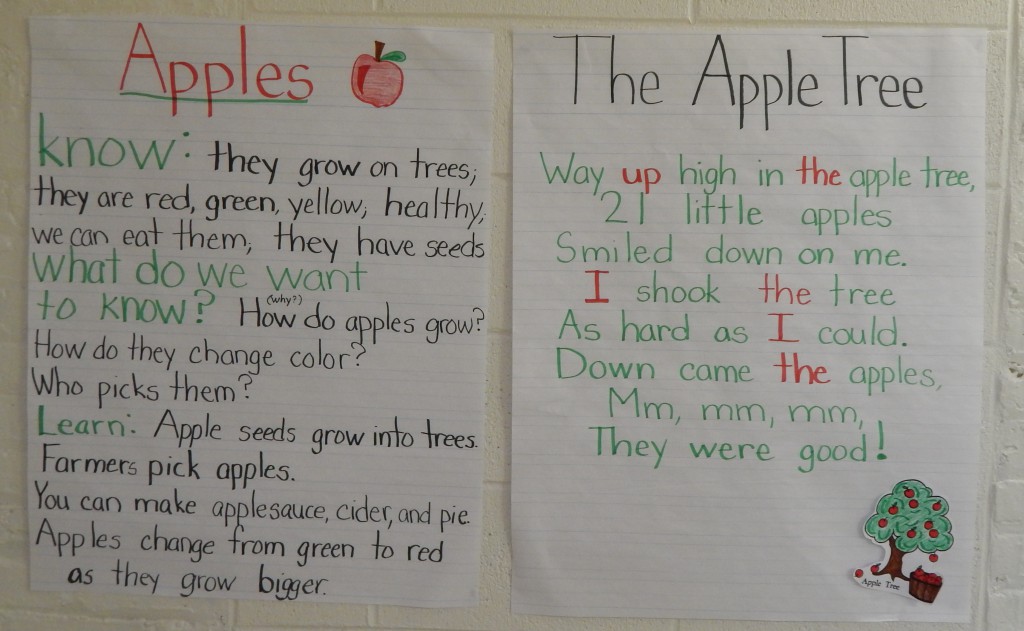 Apples
know: they grow on trees;
they are red, green, yellow; healthy;
we can eat them; they have seeds
What do we want
to know? (why?) How do apples grow?
How do they change color?
Who picks them?
Learn: Apple seeds grow into trees.
Farmers pick apples.
You can make applesauce, cider, and pie.
Apples change from green to red
as they grow bigger.
The Apple Tree
Way up high in the apple tree,
21 little apples
Smiled down on me.
I shook the tree
As hard as I could.
Down came the apples,
Mm, mm, mm,
They were good!
Apple Tree